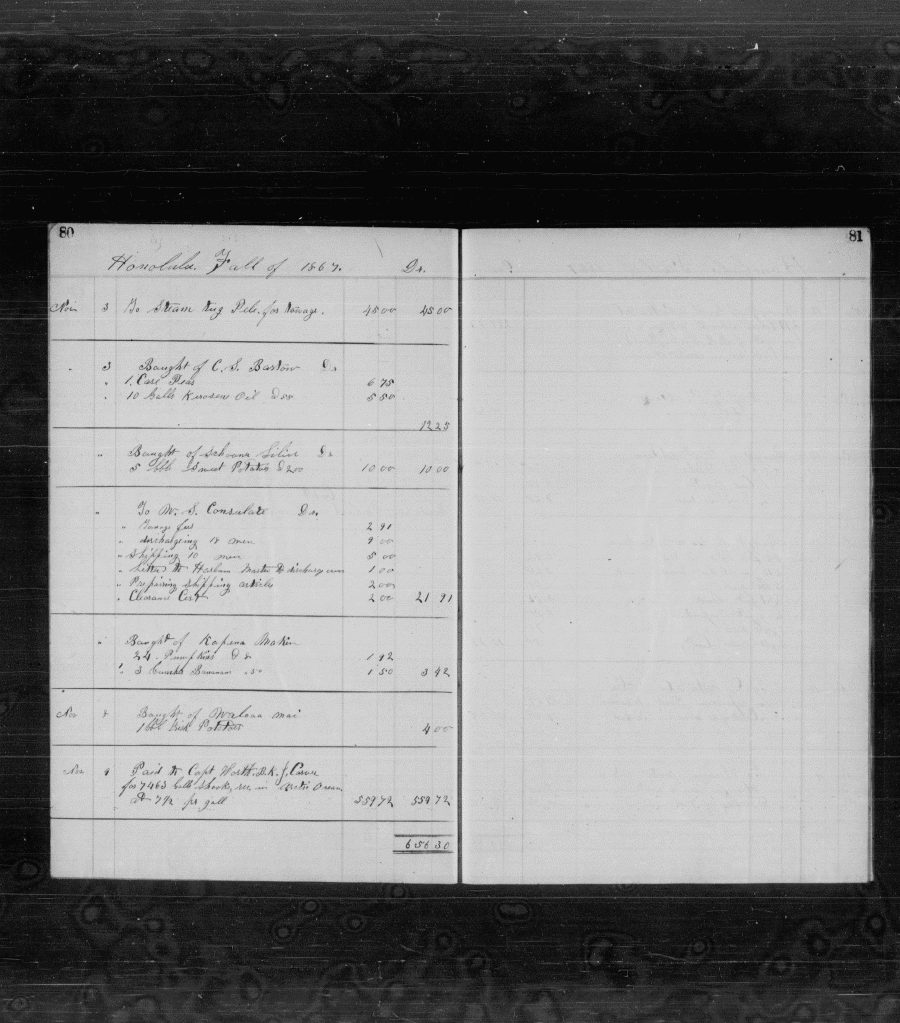 80
Honolulu. Fall of 1867. Dr.
Nov 3 To Steam tug Pele. for towage. 45 00 45 00
" 3 Bought of C. S. Bartow Dr
" 1 Case Pears 6 75
" 10 Galls Kerosen Oil 5 50
12 25
" Bought of Schoona Dr
5 bbls Sweet Potatos 200 10 00 10 00
" To U. S. Consulate Dr.
" fees 2 91
" dischargeing 18 men 9 00
" Shipping 10 men 5 00
" Letter to Harbour Master 1 00
" Prepairing shipping articles 2 00
" Clearance Cert 2 00 21 91
" Bought of Kapena Makin
24 Pumpkins 1 92
" 3 Bunches Bananas .50 1 50 3 42
Nov 8 Bought of
1 bbl Irish Potatoes 4 00
Nov 9 Paid to Capt
for 7463 Galls Shooks, rec in Arctic Ocean
at 7½ pr gall 559 72 559 72
656 30
81